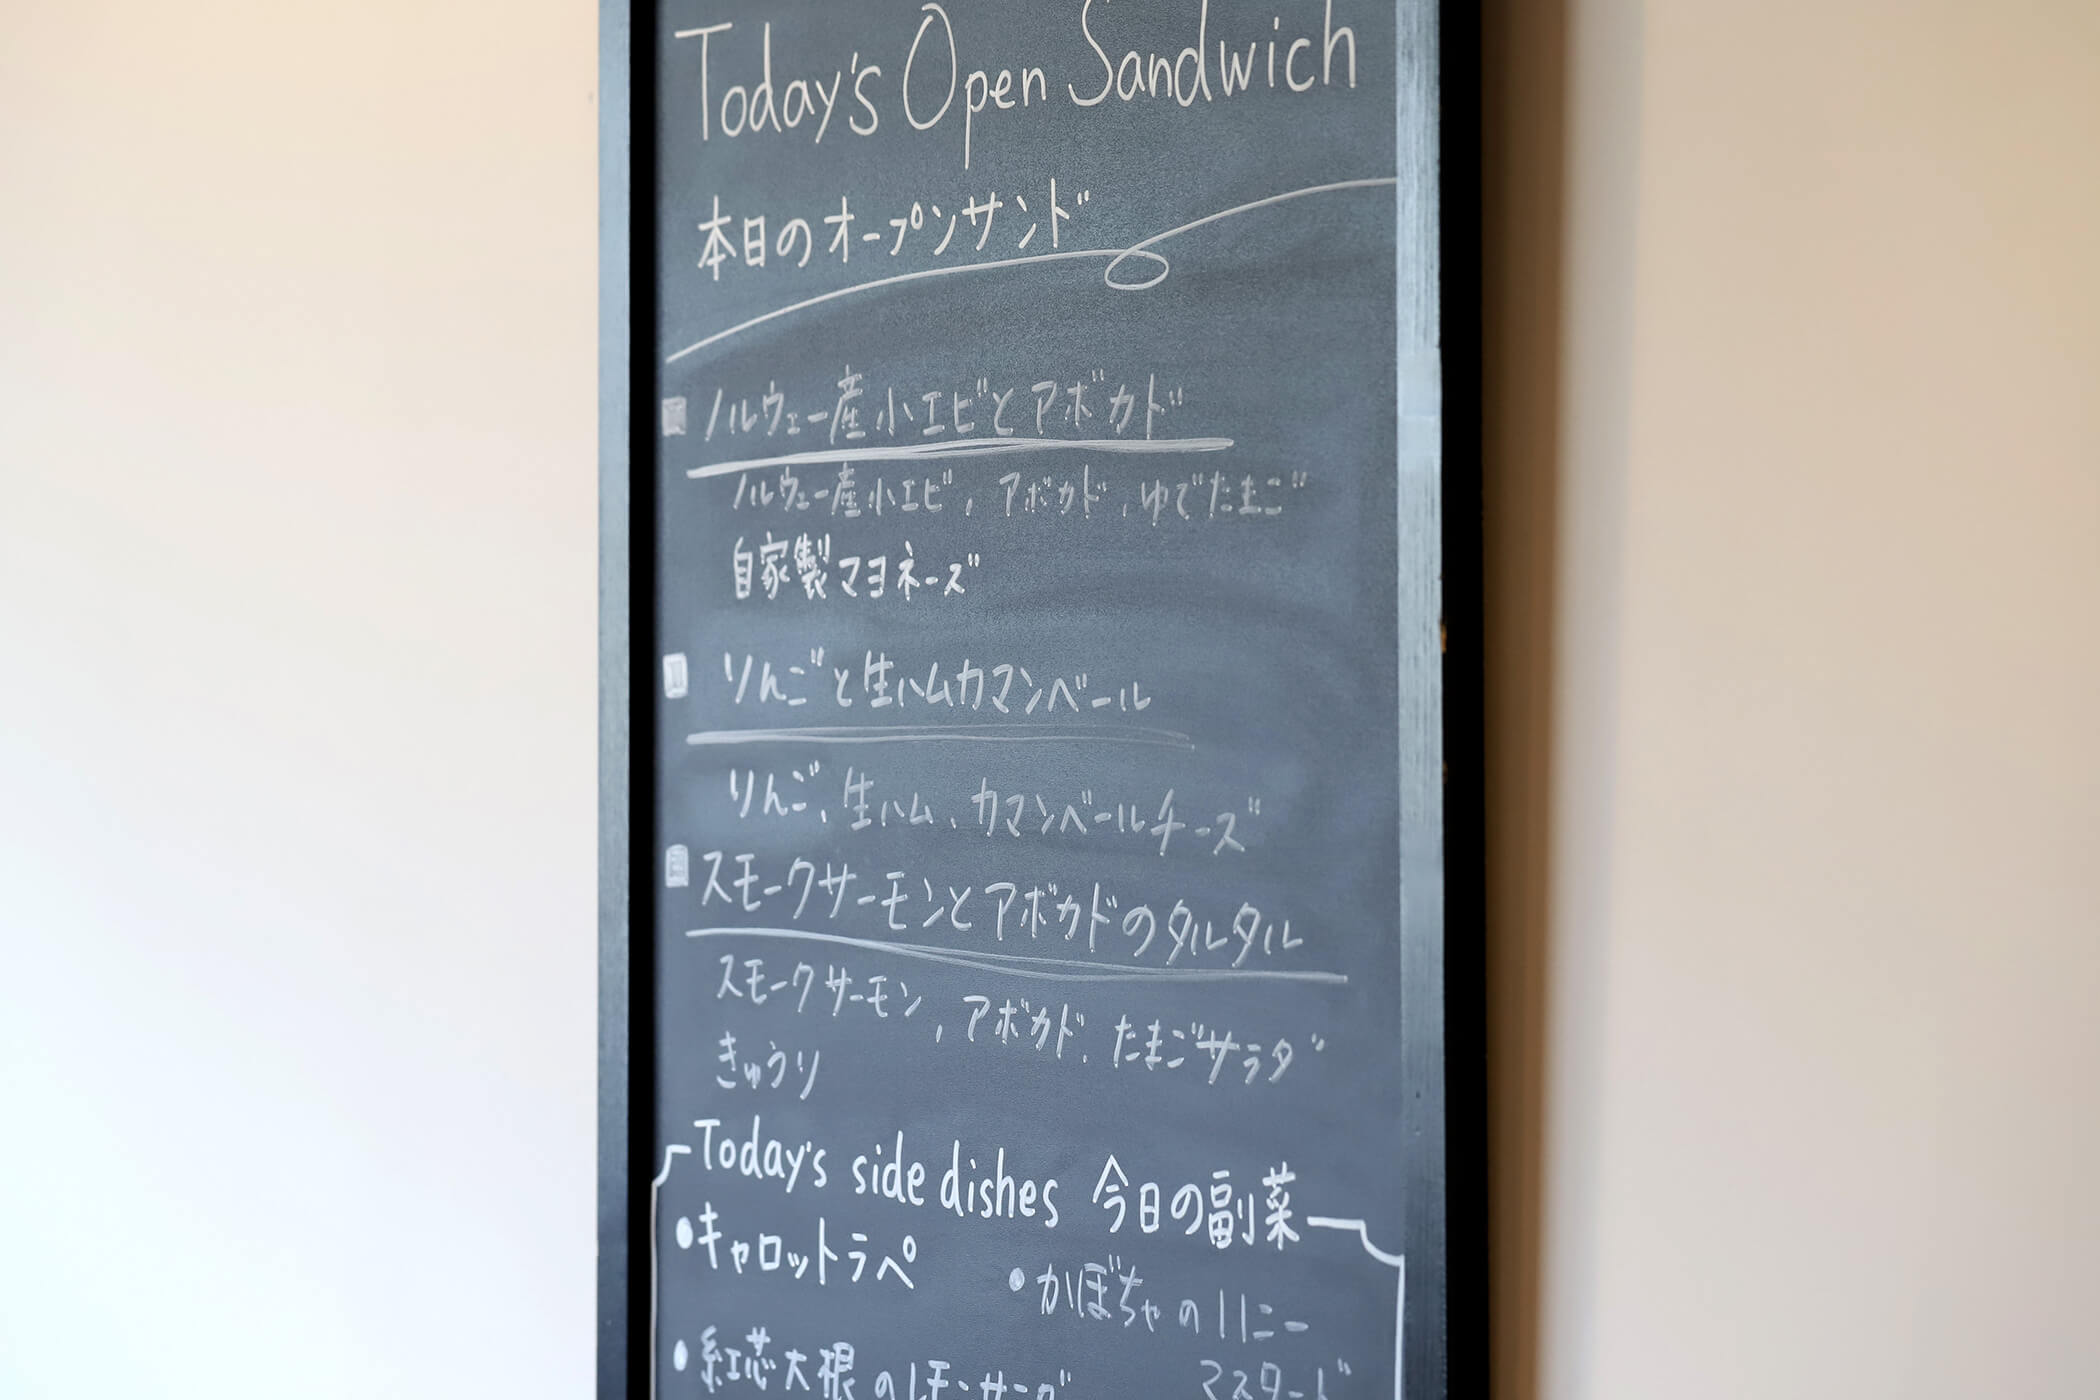 Today's Open Sandwich
本日のオープンサンド
ノルウェー産小エビとアボカド
ノルウェー産小エビ, アボカド, ゆでたまご
自家製マヨネーズ
りんごと生ハムカマンベール
りんご、生ハム、カマンベールチーズ
スモークサーモンとアボカドのタルタル
スモークサーモン, アボカド, たまごサラダ
きゅうり
Today's side dishes 今日の副菜
•キャロットラペ
•かぼちゃのハニー
マスタード
•紅芯大根のレモン